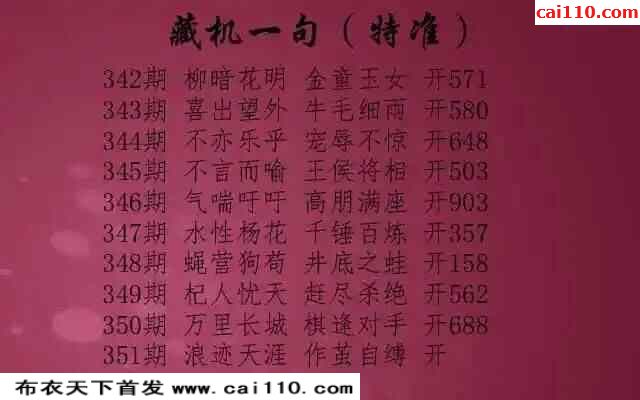 彩吧
cai110.com
藏机一句（特准）
342期 柳暗花明 金童玉女 开571
343期 喜出望外 牛毛细雨 开580
344期 不亦乐乎 宠辱不惊 开648
345期 不言而喻 王侯将相 开503
346期 气喘吁吁 高朋满座 开903
347期 水性杨花 千锤百炼 开357
348期 蝇营狗苟 井底之蛙 开158
349期 杞人忧天 赶尽杀绝 开562
350期 万里长城 棋逢对手 开688
351期 浪迹天涯 作茧自缚 开
布衣天下首发 www.cai110.com